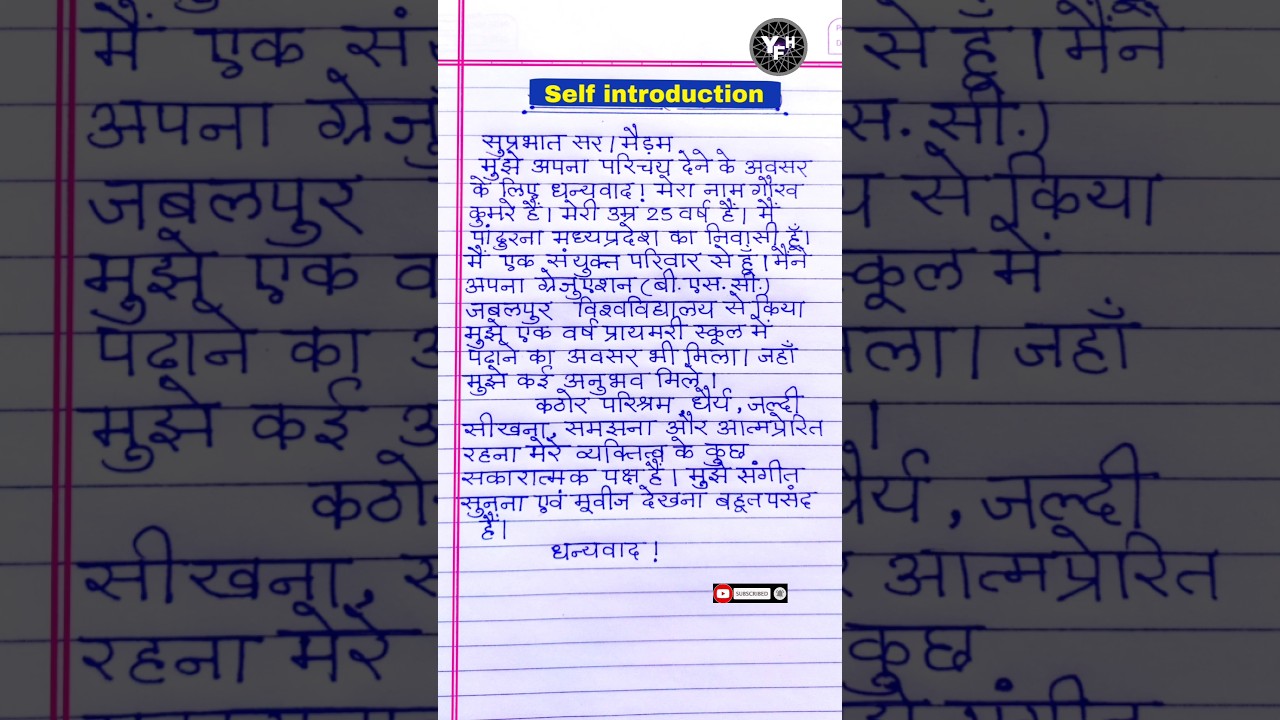 YFH
Self introduction
सुप्रभात सर।मैड़म
मुझे अपना परिचय देने के अवसर
के लिए धन्यवाद! मेरा नाम गौरव
कुमरे हैं। मेरी उम्र 25 वर्ष हैं। मैं
पांढुरना मध्यप्रदेश का निवासी हूँ।
मैं एक संयुक्त परिवार से हूँ।मैंने
अपना ग्रेजुएशन(बी.एस.सी.)
जबलपुर विश्वविद्यालय से किया
मुझे एक वर्ष प्रायमरी स्कूल में
पढ़ाने का अवसर भी मिला। जहाँ
मुझे कई अनुभव मिले।
कठोर परिश्रम,धैर्य,जल्दी
सीखना, समझना और आत्मप्रेरित
रहना मेरे व्यक्तित्व के कुछ
सकारात्मक पक्ष हैं। मुझे संगीत
सुनना एवं मूवीज देखना बहुत पसंद
हैं।
धन्यवाद!
SUBSCRIBED